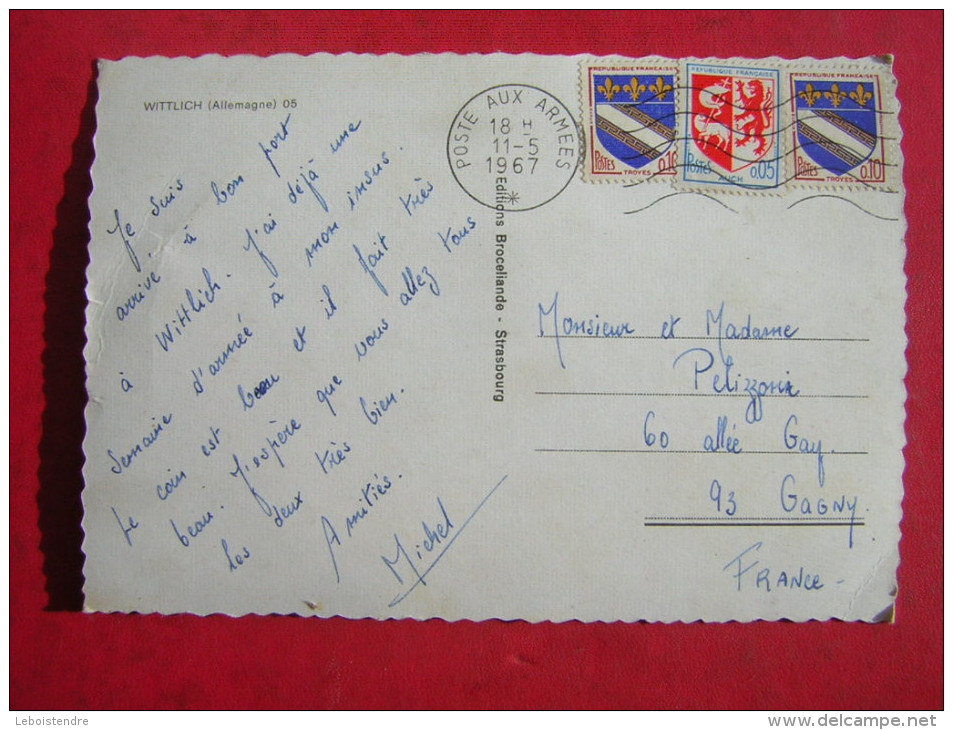 WITTLICH (Allemagne) 05
Je suis bon port
arrivé à
à Wittlich. J'ai déjà une
semaine d'armée à mon insus.
Le coin est beau et il fait très
beau. J'espère que vous allez tous
les deux très bien.
Amitiés.
Michel
Editions Broceliande - Strasbourg
POSTE AUX ARMEES
18 H
11-5
1967
*
REPUBLIQUE FRANÇAISE
POSTES 0.10
TROYES
REPUBLIQUE FRANÇAISE
POSTES 0.05
AUCH
REPUBLIQUE FRANÇAISE
POSTES 0.10
TROYES
Monsieur et Madame
60 allée Gay.
93 GAGNY.
FRANCE -
Leboistendre
www.delcampe.net